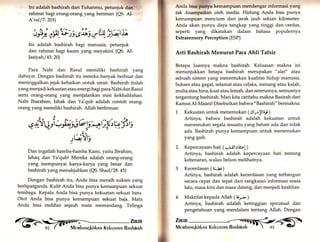 Ini adalah bashirah dari Tuhanmu, petunjuk dan
rahmat bagi orang-orang yang beriman (QS. Al-
A'raf/7: 203)
Ini adalah bashirah bagi manusia, petunjuk
dan rahmat bagi kaum yang meyakini. (QS. Al-
Jasiyah/45: 20)
Para Nabi dan Rasul memiliki bashirah yang
dahsyat. Dengan bashirah itu mereka banyak berbuat dan
meninggalkan jejak kebaikan untuk umat. Bashirah itulah
yang menjadi kekuatan atau energi bagi para Nabi dan Rasul
serta orang-orang yang menjalankan misi kekhalifahan.
Nabi Ibrahim, Ishak dan Ya'qub adalah contoh orang-
orang yang memiliki bashirah. Allah berfirman:
Dan ingatlah hamba-hamba Kami, yaitu Ibrahim,
Ishaq dan Ya'qub? Mereka adalah orang-orang
yang mempunyai karya-karya yang besar dan
bashirah yang menakjubkan (QS. Shad/28: 45)
Dengan bashirah itu, Anda bisa meraih sukses yang
berlipatganda. Kulit Anda bisa punya kemampuan sekuat
tembaga. Kepala Anda bisa punya kekuatan sekuat batu.
Otot Anda bisa punya kemampuan sekuat baja. Mata
Anda bisa melihat sejauh mata memandang. Telinga
ZIKIR
92
Membangkitkan Kekuatan Bashirah
Anda bisa punya kemampuan mendengar informasi yang
tak disampaikan oleh media. Hidung Anda bisa punya
kemampuan mencium dari jarak jauh sekian kilometer.
Anda akan punya daya tangkap yang tinggi dan cerdas,
seperti yang dikatakan dalam bahasa populernya
Extrasensory Perception (ESP).
Arti Bashirah Menurut Para Ahli Tafsir
Betapa luasnya makna bashirah. Keluasan makna ini
menunjukkan betapa bashirah merupakan "alat" atau
sebuah sistem yang menentukan kualitas hidup manusia.
Sukses atau gagal, selamat atau celaka, menang atau kalah,
mulia atau hina, kuat atau lemah, dan seterusnya, semuanya
tergantung bashirah. Mari kita cari tahu makna Basirah dari
Kamus Al-Maani! Disebutkan bahwa "Bashirah" bermakna:
1. Kekuatan untuk menemukan (قوة الإدراك)
Artinya, bahwa bashirah adalah kekuatan untuk
menemukan segala sesuatu yang belum ada dan tidak
ada. Bashirah punya kemampuan untuk menemukan
yang gaib.
2. Kepercayaan hati (
Artinya, bashirah adalah kepercayaan hati tentang
kebenaran, walau belum melihatnya.
3. Kecerdasan (
Artinya, bashirah adalah kecerdasan yang terbangun
secara cepat dan tepat dari rangkaian informasi masa
lalu, masa kini dan masa datang, dan menjadi keahlian.
4. Makrifat kepada Allah (
Artinya, bashirah adalah ketinggian spiritual dan
pengetahuan yang mendalam tentang Allah. Dengan
ZIKIR
93
Membangkitkan Kekuatan Bashirah